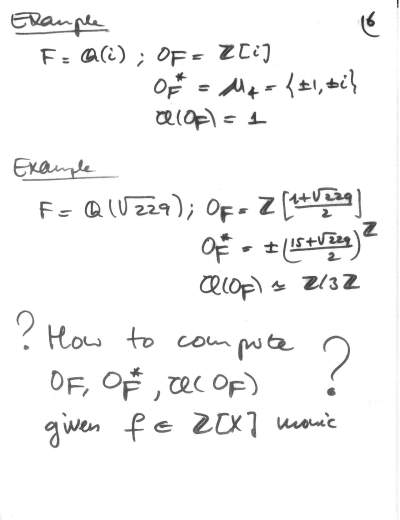 Example
16
F = Q(i) ; O_F = Z[i]
O_F^* = μ_4 = {±1, ±i}
Cl(O_F) = 1
Example
F = Q(√229) ; O_F = Z[(1+√229)/2]
O_F^* = ±((15+√229)/2)^Z
Cl(O_F) ≃ Z/3Z
? How to compute
O_F, O_F^*, Cl(O_F) ?
given f ∈ Z[X] monic